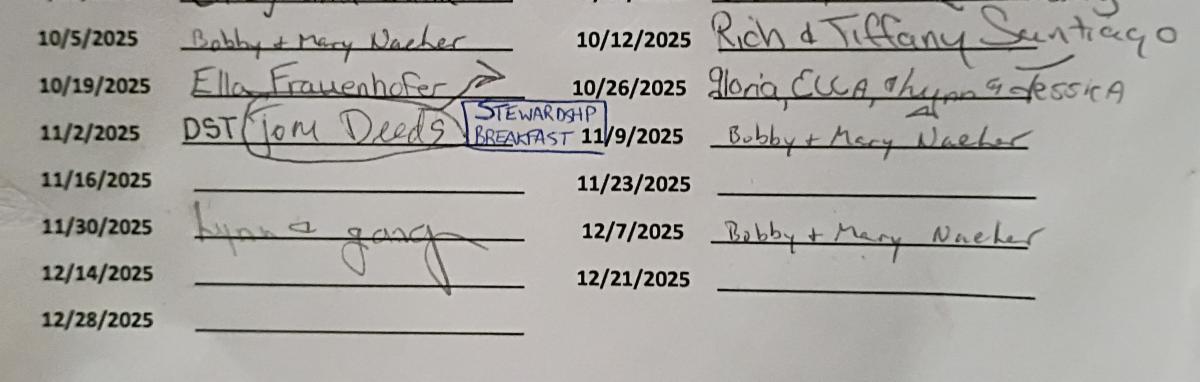 10/5/2025 Bobby + Mary Naeher 10/12/2025 Rich & Tiffany Santiago
10/19/2025 Ella Frauenhofer 10/26/2025 gloria, ELLA, Lynn & JessicA
11/2/2025 DST Tom Deeds STEWARDSHP BREAKFAST 11/9/2025 Bobby + Mary Naeher
11/16/2025 11/23/2025
11/30/2025 Lynn & gang 12/7/2025 Bobby + Mary Naeher
12/14/2025 12/21/2025
12/28/2025